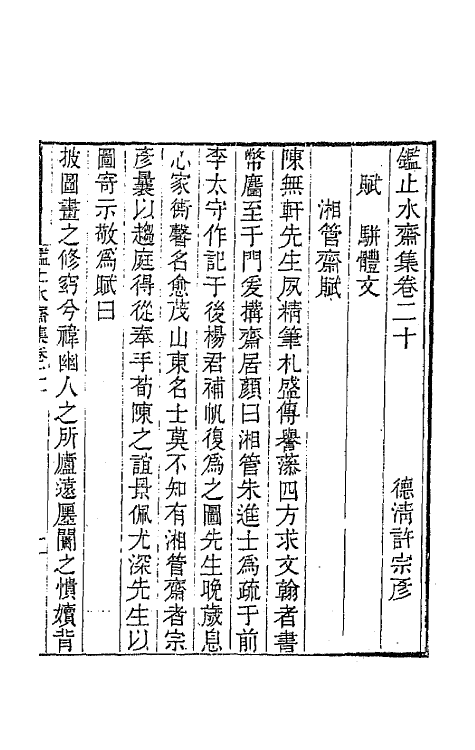 鑑止水齋集卷二十
德淸許宗彥
賦　駢體文
湘管齋賦
陳無軒先生夙精筆札盛傳譽藻四方求文翰者書
幣麕至于門爰搆齋居顏曰湘管朱進士爲疏于前
李太守作記于後楊君補帆復爲之圖先生晚歲息
心家衖馨名愈茂山東名士莫不知有湘管齋者宗
彥曩以趨庭得從奉手荀陳之誼景佩尤深先生以
圖寄示敬爲賦曰
披圖畫之修窈兮禕幽人之所廬遠廛闤之憒嬻背
鑑止水齋集卷二十
一